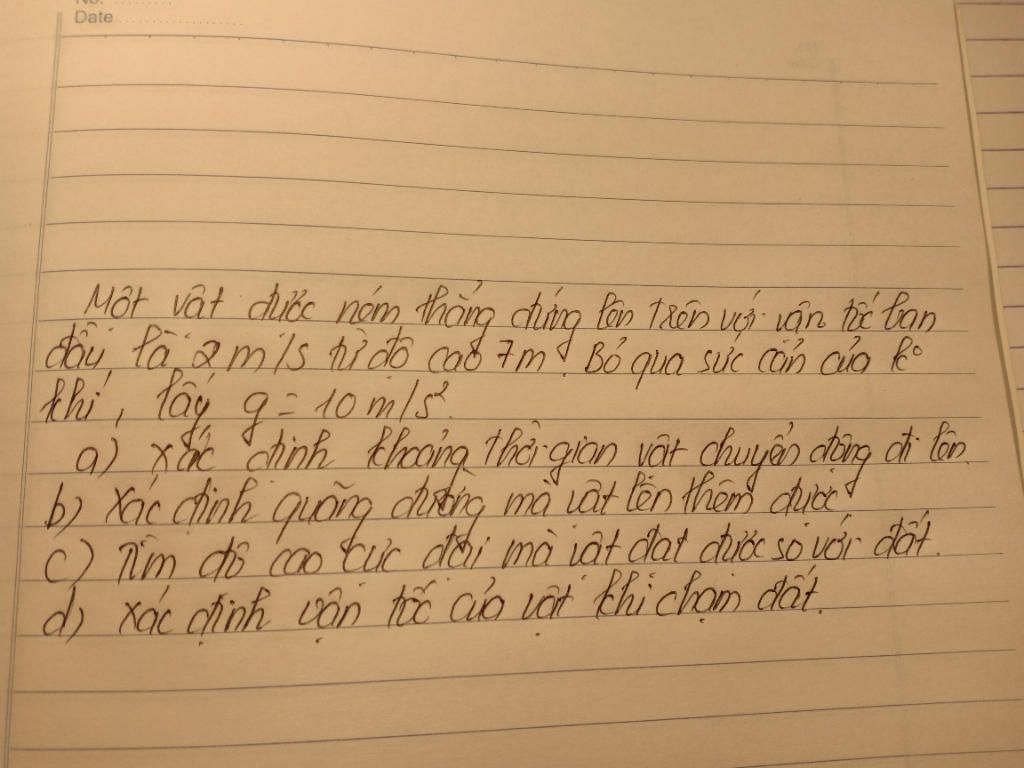 Date
Một vật được ném thẳng đứng lên trên với vận tốc ban
đầu là 2 m/s từ độ cao 7m. Bỏ qua sức cản của k°
khí, lấy g = 10 m/s².
a) xác định khoảng thời gian vật chuyển động đi lên.
b) xác định quãng đường mà vật lên thêm được
c) Tìm độ cao cực đại mà vật đạt được so với đất.
d) xác định vận tốc của vật khi chạm đất.